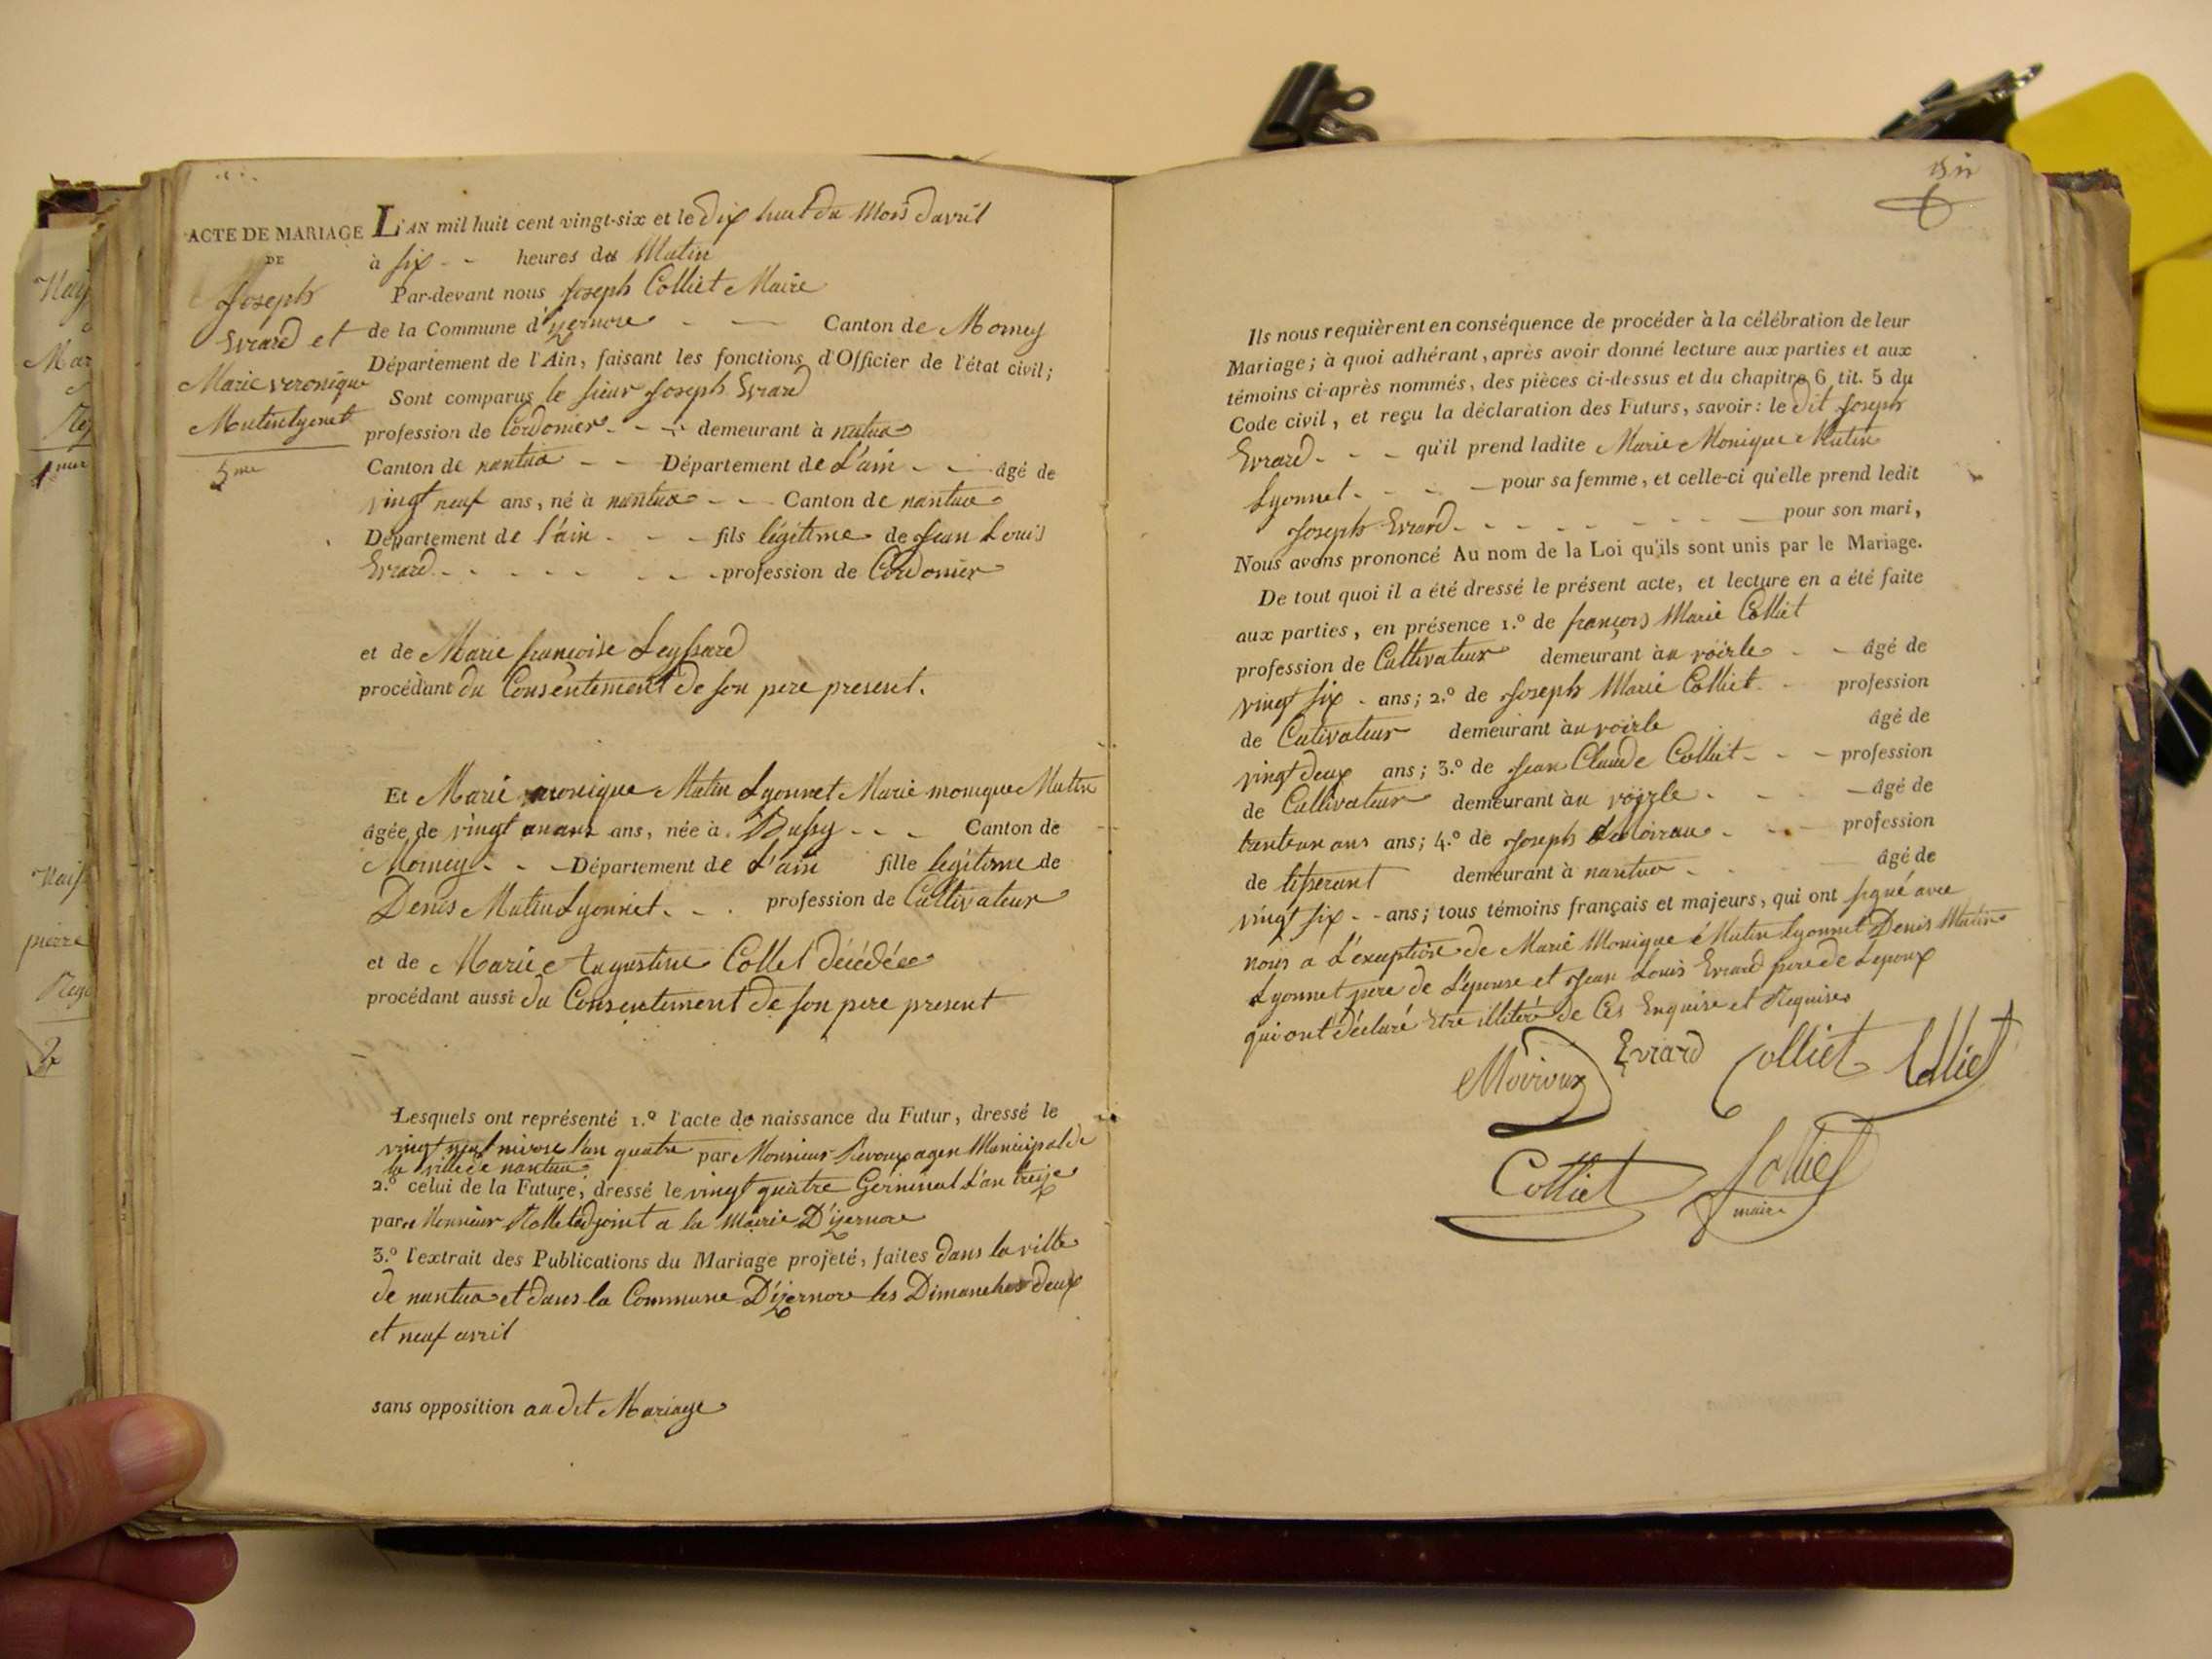 ACTE DE MARIAGE
DE
Joseph
Evrard et
Marie veronique
Mutin lyonet
5me
L'AN mil huit cent vingt-six et le dix huit du Mois davril
à six heures du Matin
Par-devant nous Joseph Colliet Maire
de la Commune d'izernore Canton de Mornay
Département de l'Ain, faisant les fonctions d'Officier de l'état civil;
Sont comparus le sieur Joseph Evrard
profession de Cordonier demeurant à nantua
Canton de nantua Département de L'ain âgé de
vingt neuf ans, né à nantua Canton de nantua
Département de l'ain fils légitime de Jean Louis
Evrard profession de Cordonier
et de Marie françoise Leyssard
procédant du Consentement de son pere present.
Et Marie Mutin Lyonnet Marie monique Mutin
âgée de vingt un ans ans, née à Bussy Canton de
Mornay Département de L'ain fille legitime de
Denis Mutin Lyonnet profession de Cultivateur
et de Marie Augustine Collet décédée
procédant aussi du Consentement de son pere present
Lesquels ont représenté 1.º l'acte de naissance du Futur, dressé le
vingt neuf nivose l'an quatre par Monsieur agen Municipal de
la ville de nantua
2.º celui de la Future, dressé le vingt quatre Germinal L'an treize
par Monsieur adjoint a la Mairie D'izernore
3.º l'extrait des Publications du Mariage projeté, faites dans la ville
de nantua et dans la Commune D'izernore les Dimanches deux
et neuf avril
sans opposition au dit Mariage
Ils nous requièrent en conséquence de procéder à la célébration de leur
Mariage; à quoi adhérant, après avoir donné lecture aux parties et aux
témoins ci-après nommés, des pièces ci-dessus et du chapitre 6 tit. 5 du
Code civil, et reçu la déclaration des Futurs, savoir: le dit Joseph
Evrard qu'il prend ladite Marie Monique Mutin
Lyonnet pour sa femme, et celle-ci qu'elle prend ledit
Joseph Evrard pour son mari,
Nous avons prononcé Au nom de la Loi qu'ils sont unis par le Mariage.
De tout quoi il a été dressé le présent acte, et lecture en a été faite
aux parties, en présence 1.º de françois Marie Colliet
profession de Cultivateur demeurant à au voërle âgé de
vingt six ans; 2.º de Joseph Marie Colliet profession
de Cutivateur demeurant à au voërle âgé de
vingt deux ans; 3.º de Jean Claude Colliet profession
de Cultivateur demeurant à au voërle âgé de
trente un ans ans; 4.º de Joseph profession
de tisserant demeurant à nantua âgé de
vingt six ans; tous témoins français et majeurs, qui ont signé avec
nous a L'exeption de Marie Monique Mutin lyonnet Denis Mutin
Lyonnet pere de L'epouse et Jean Louis Evrard pere de Lepoux
qui ont déclaré Etre illitéré de Ces Enquise et Requises
Evrard Colliet Colliet
Colliet Colliet
maire